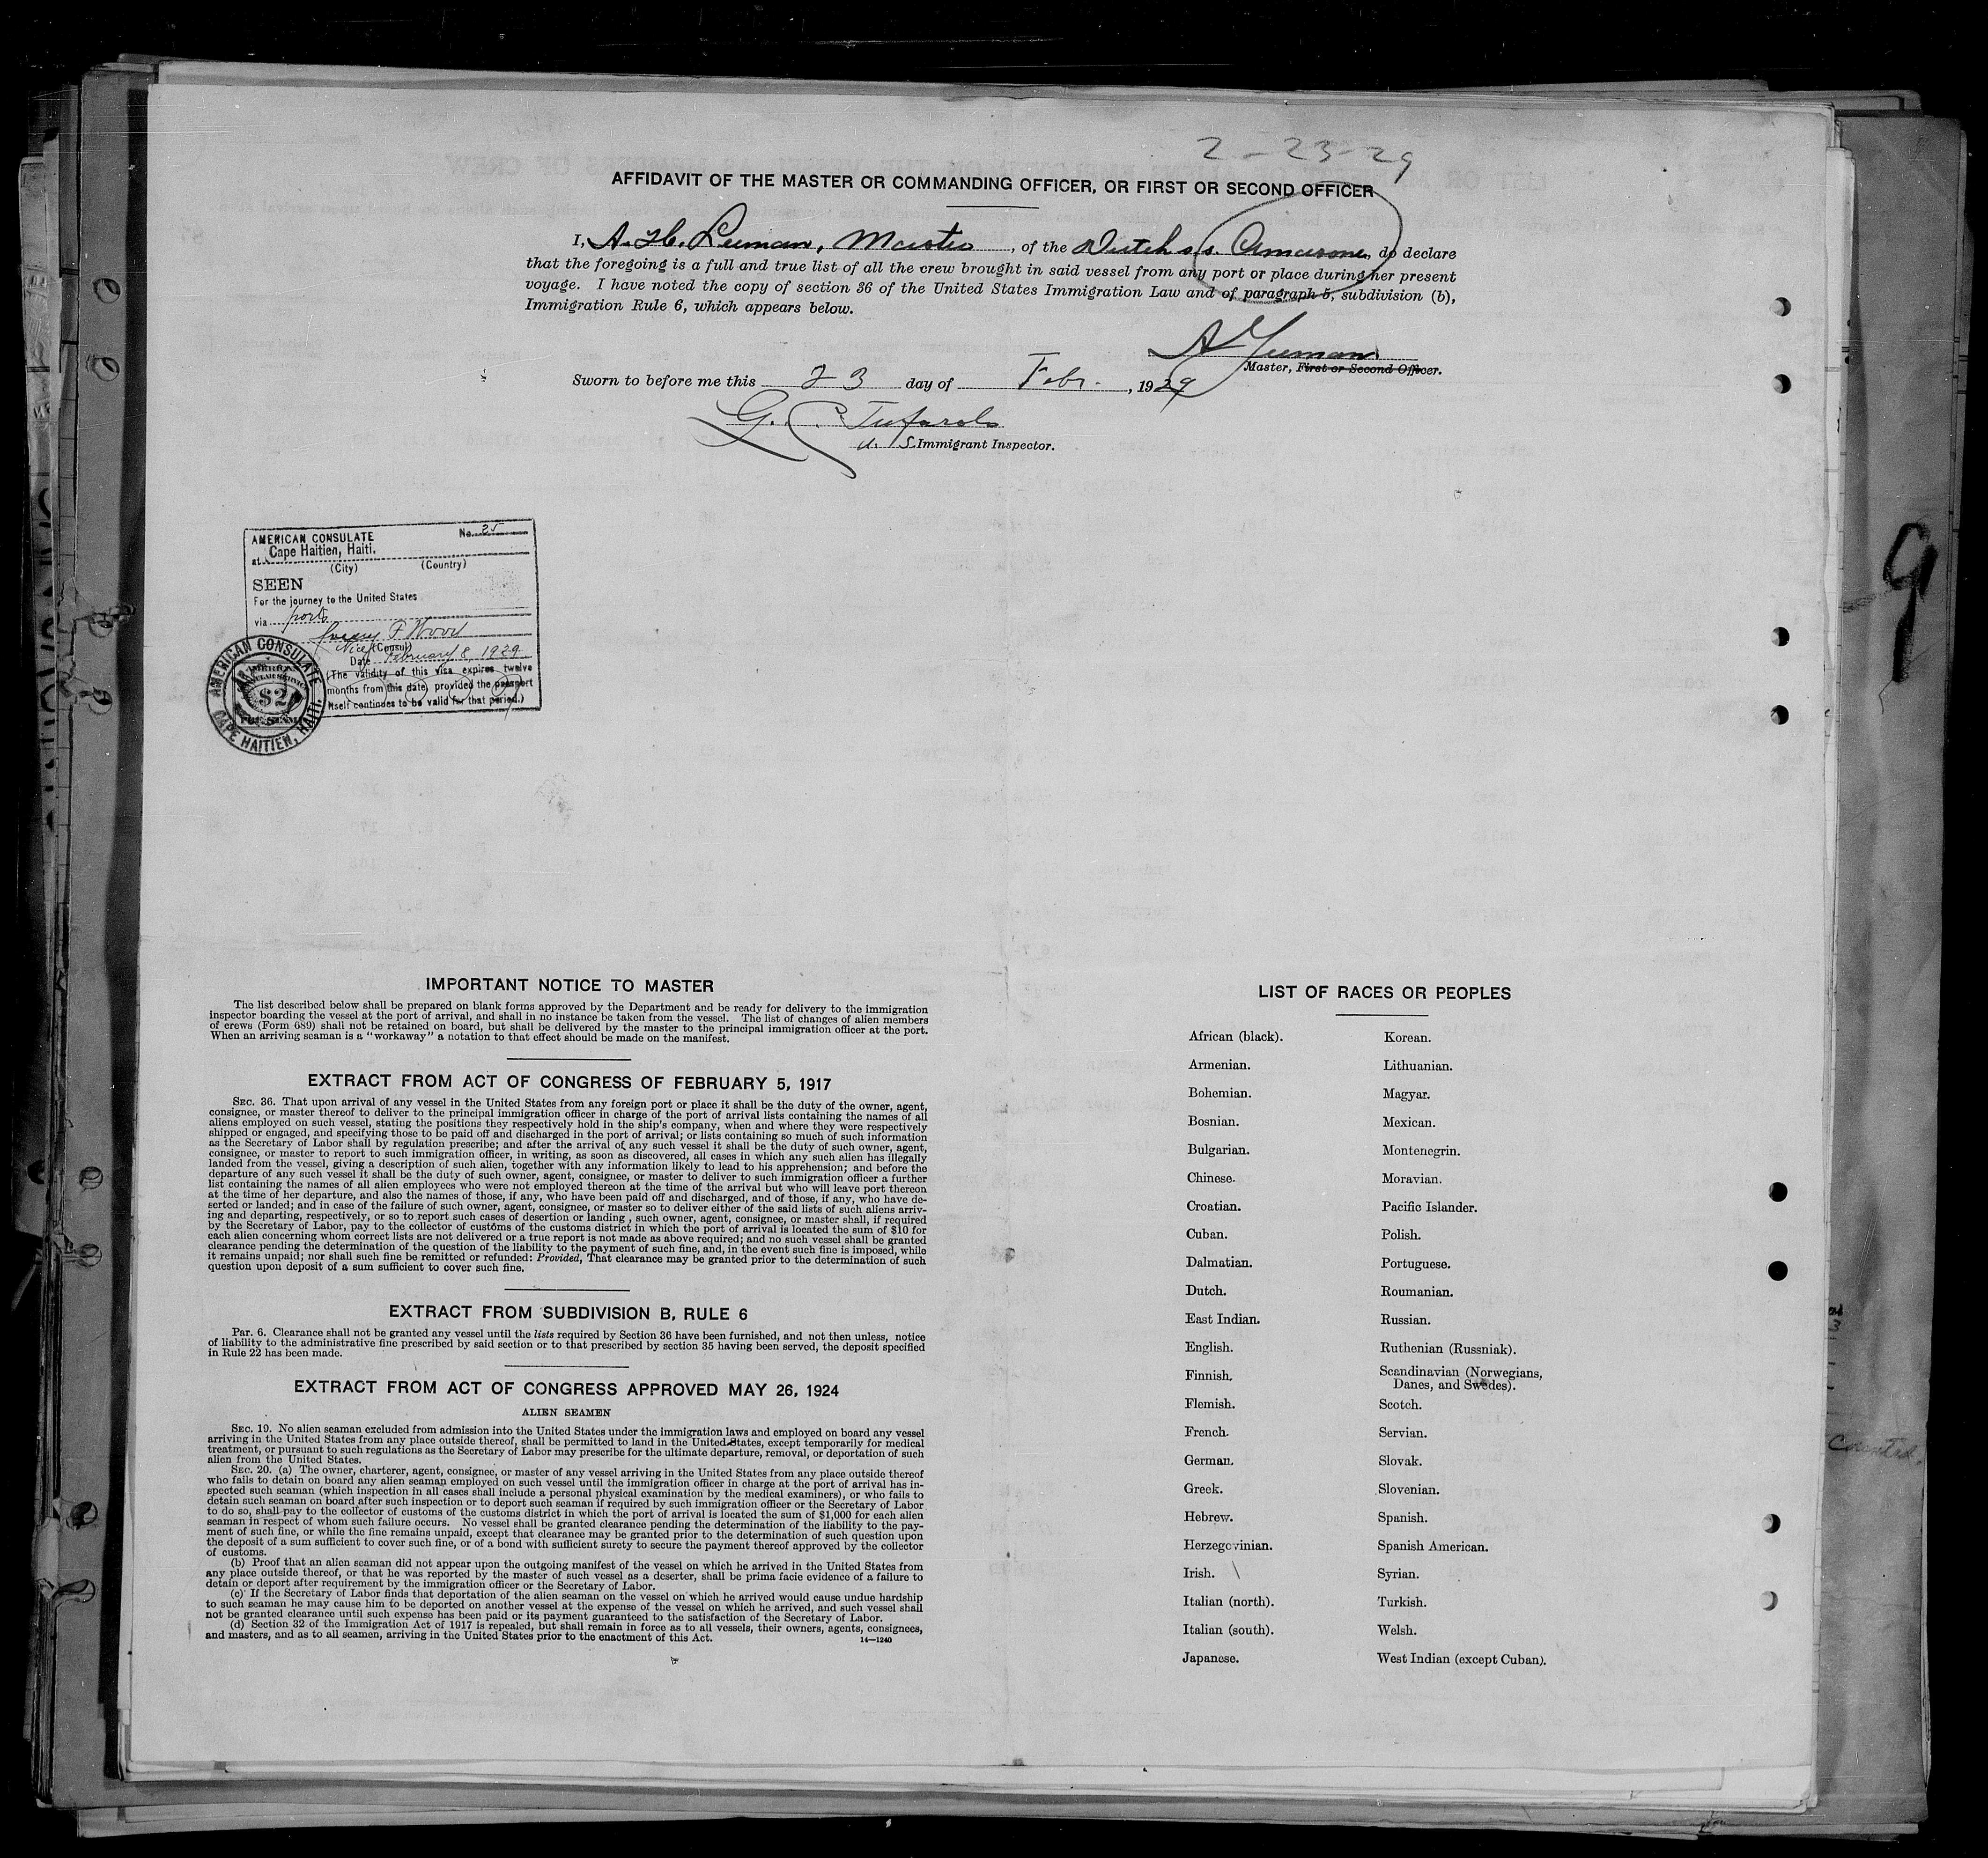 2-23-29
AFFIDAVIT OF THE MASTER OR COMMANDING OFFICER, OR FIRST OR SECOND OFFICER
I, A. H. Leeman, Master, of the Dutch s.s. Amazone, do declare
that the foregoing is a full and true list of all the crew brought in said vessel from any port or place during her present
voyage. I have noted the copy of section 36 of the United States Immigration Law and of paragraph 5, subdivision (b),
Immigration Rule 6, which appears below.
Master, First or Second Officer.
Sworn to before me this 23 day of Febr., 1929
G. C.
U. S. Immigrant Inspector.
AMERICAN CONSULATE No. 25
at Cape Haitien, Haiti.
(City) (Country)
SEEN
For the journey to the United States
via ports
P Wood
Vice (Consul)
Date February 8, 1929
(The validity of this visa expires twelve
months from this date, provided the passport
itself continues to be valid for that period.)
AMERICAN CONSULATE
$2
CAPE HAITIEN, HAITI.
9
IMPORTANT NOTICE TO MASTER
The list described below shall be prepared on blank forms approved by the Department and be ready for delivery to the immigration
inspector boarding the vessel at the port of arrival, and shall in no instance be taken from the vessel. The list of changes of alien members
of crews (Form 689) shall not be retained on board, but shall be delivered by the master to the principal immigration officer at the port.
When an arriving seaman is a "workaway" a notation to that effect should be made on the manifest.
EXTRACT FROM ACT OF CONGRESS OF FEBRUARY 5, 1917
SEC. 36. That upon arrival of any vessel in the United States from any foreign port or place it shall be the duty of the owner, agent,
consignee, or master thereof to deliver to the principal immigration officer in charge of the port of arrival lists containing the names of all
aliens employed on such vessel, stating the positions they respectively hold in the ship's company, when and where they were respectively
shipped or engaged, and specifying those to be paid off and discharged in the port of arrival; or lists containing so much of such information
as the Secretary of Labor shall by regulation prescribe; and after the arrival of any such vessel it shall be the duty of such owner, agent,
consignee, or master to report to such immigration officer, in writing, as soon as discovered, all cases in which any such alien has illegally
landed from the vessel, giving a description of such alien, together with any information likely to lead to his apprehension; and before the
departure of any such vessel it shall be the duty of such owner, agent, consignee, or master to deliver to such immigration officer a further
list containing the names of all alien employees who were not employed thereon at the time of the arrival but who will leave port thereon
at the time of her departure, and also the names of those, if any, who have been paid off and discharged, and of those, if any, who have de-
serted or landed; and in case of the failure of such owner, agent, consignee, or master so to deliver either of the said lists of such aliens arriv-
ing and departing, respectively, or so to report such cases of desertion or landing, such owner, agent, consignee, or master shall, if required
by the Secretary of Labor, pay to the collector of customs of the customs district in which the port of arrival is located the sum of $10 for
each alien concerning whom correct lists are not delivered or a true report is not made as above required; and no such vessel shall be granted
clearance pending the determination of the question of the liability to the payment of such fine, and, in the event such fine is imposed, while
it remains unpaid; nor shall such fine be remitted or refunded: Provided, That clearance may be granted prior to the determination of such
question upon deposit of a sum sufficient to cover such fine.
EXTRACT FROM SUBDIVISION B, RULE 6
Par. 6. Clearance shall not be granted any vessel until the lists required by Section 36 have been furnished, and not then unless, notice
of liability to the administrative fine prescribed by said section or to that prescribed by section 35 having been served, the deposit specified
in Rule 22 has been made.
EXTRACT FROM ACT OF CONGRESS APPROVED MAY 26, 1924
ALIEN SEAMEN
SEC. 19. No alien seaman excluded from admission into the United States under the immigration laws and employed on board any vessel
arriving in the United States from any place outside thereof, shall be permitted to land in the United States, except temporarily for medical
treatment, or pursuant to such regulations as the Secretary of Labor may prescribe for the ultimate departure, removal, or deportation of such
alien from the United States.
SEC. 20. (a) The owner, charterer, agent, consignee, or master of any vessel arriving in the United States from any place outside thereof
who fails to detain on board any alien seaman employed on such vessel until the immigration officer in charge at the port of arrival has in-
spected such seaman (which inspection in all cases shall include a personal physical examination by the medical examiners), or who fails to
detain such seaman on board after such inspection or to deport such seaman if required by such immigration officer or the Secretary of Labor
to do so, shall pay to the collector of customs of the customs district in which the port of arrival is located the sum of $1,000 for each alien
seaman in respect of whom such failure occurs. No vessel shall be granted clearance pending the determination of the liability to the pay-
ment of such fine, or while the fine remains unpaid, except that clearance may be granted prior to the determination of such question upon
the deposit of a sum sufficient to cover such fine, or of a bond with sufficient surety to secure the payment thereof approved by the collector
of customs.
(b) Proof that an alien seaman did not appear upon the outgoing manifest of the vessel on which he arrived in the United States from
any place outside thereof, or that he was reported by the master of such vessel as a deserter, shall be prima facie evidence of a failure to
detain or deport after requirement by the immigration officer or the Secretary of Labor.
(c) If the Secretary of Labor finds that deportation of the alien seaman on the vessel on which he arrived would cause undue hardship
to such seaman he may cause him to be deported on another vessel at the expense of the vessel on which he arrived, and such vessel shall
not be granted clearance until such expense has been paid or its payment guaranteed to the satisfaction of the Secretary of Labor.
(d) Section 32 of the Immigration Act of 1917 is repealed, but shall remain in force as to all vessels, their owners, agents, consignees,
and masters, and as to all seamen, arriving in the United States prior to the enactment of this Act.
14—1240
LIST OF RACES OR PEOPLES
African (black). Korean.
Armenian. Lithuanian.
Bohemian. Magyar.
Bosnian. Mexican.
Bulgarian. Montenegrin.
Chinese. Moravian.
Croatian. Pacific Islander.
Cuban. Polish.
Dalmatian. Portuguese.
Dutch. Roumanian.
East Indian. Russian.
English. Ruthenian (Russniak).
Finnish. Scandinavian (Norwegians,
Danes, and Swedes).
Flemish. Scotch.
French. Servian.
German. Slovak.
Greek. Slovenian.
Hebrew. Spanish.
Herzegovinian. Spanish American.
Irish. Syrian.
Italian (north). Turkish.
Italian (south). Welsh.
Japanese. West Indian (except Cuban).